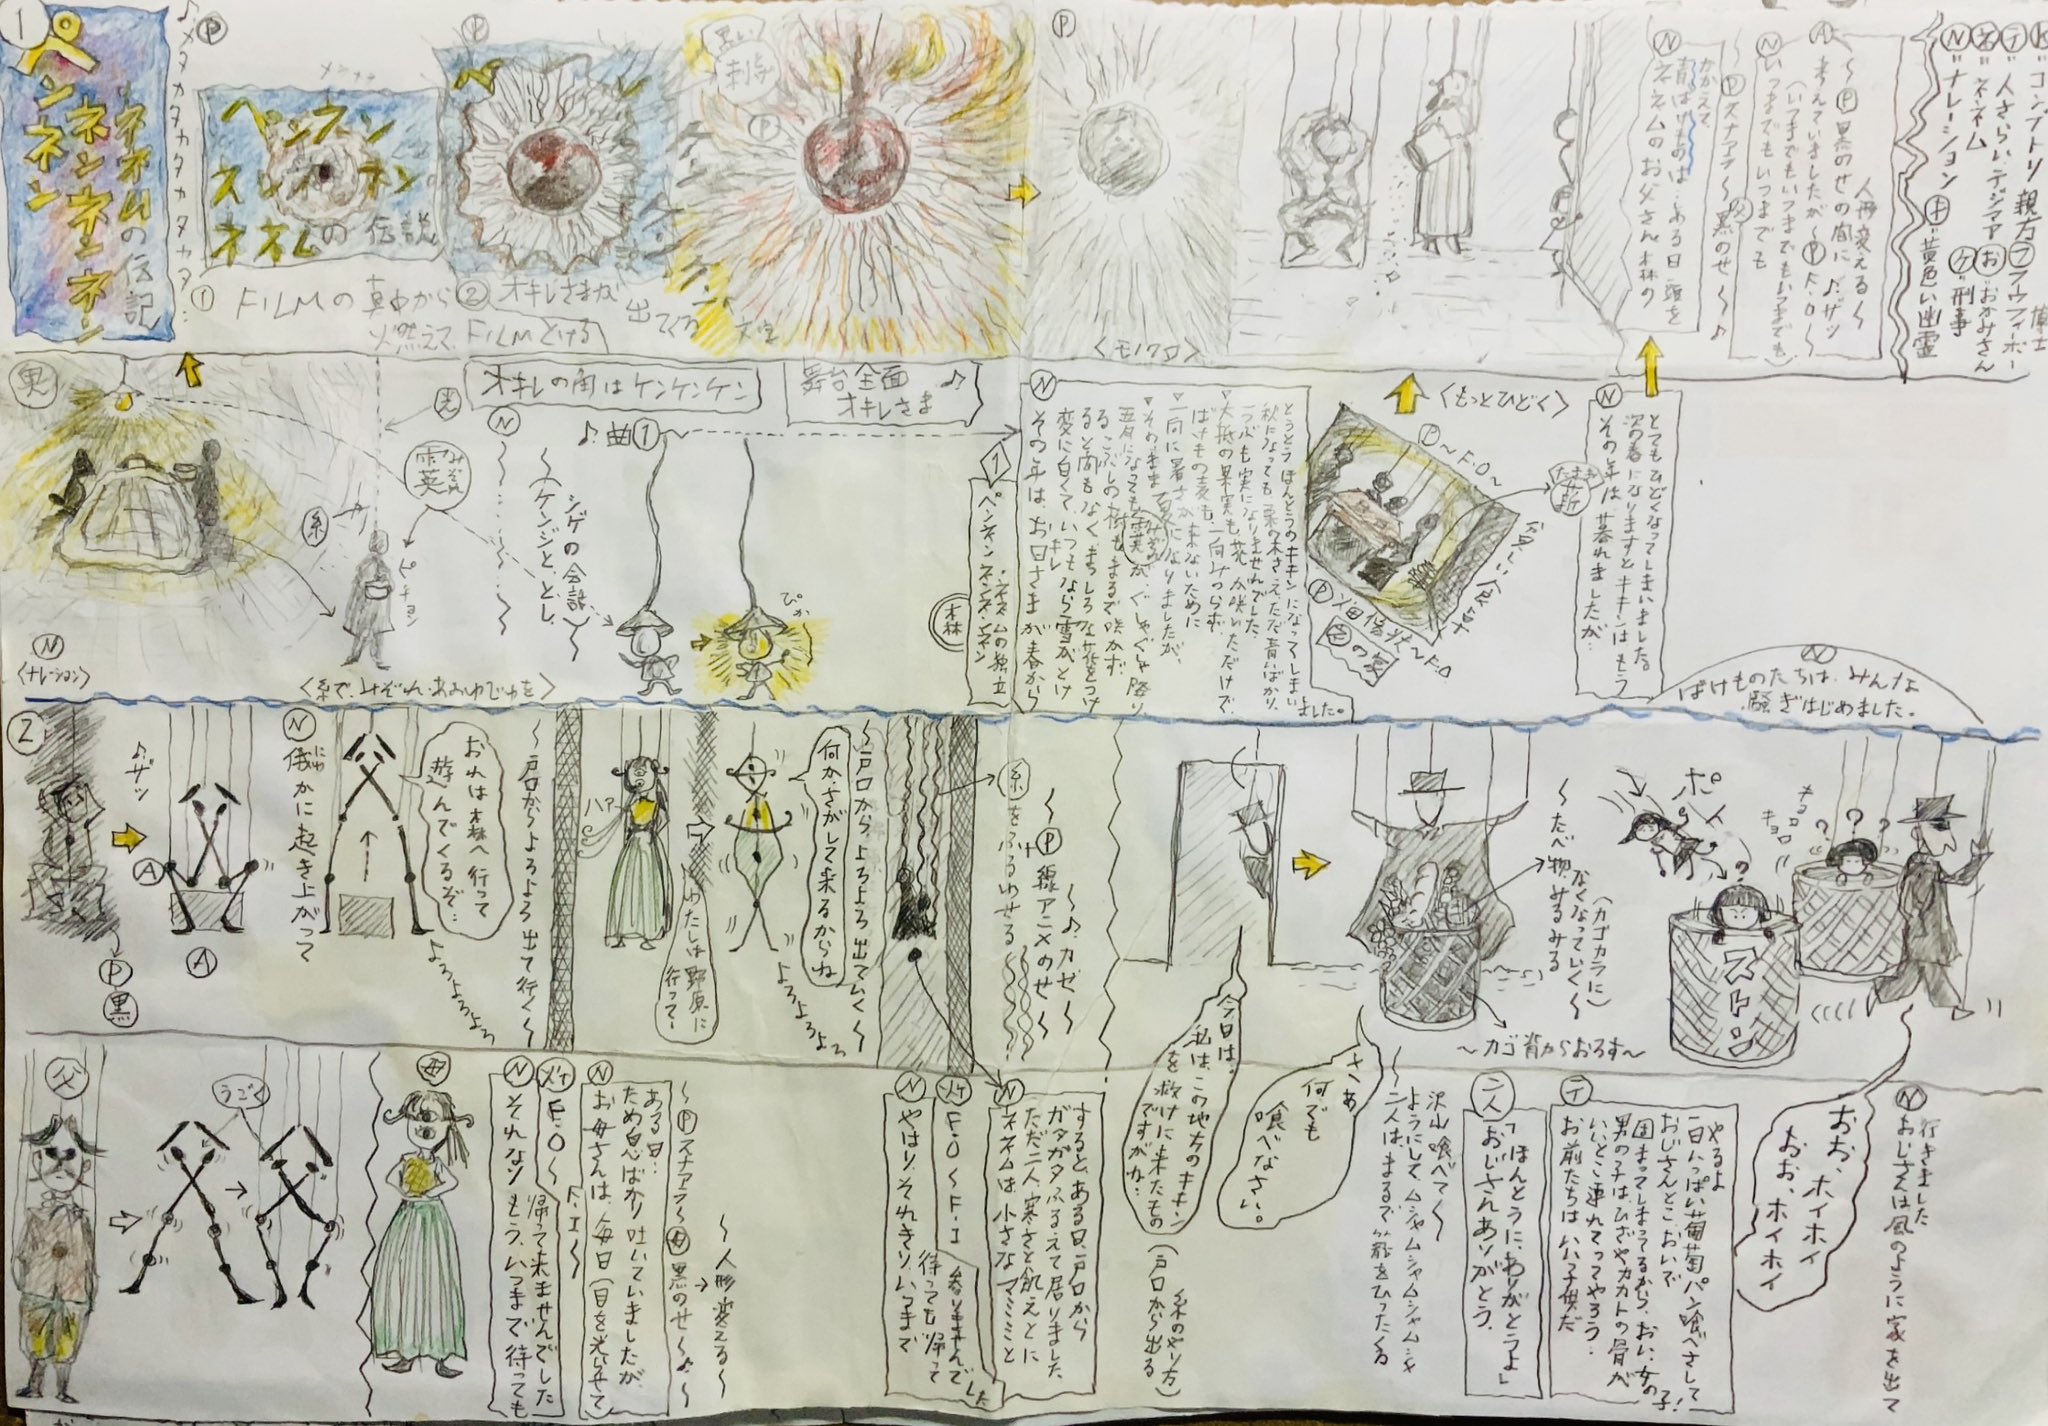 1
ペンネン
ネンネンネン
ネネムの伝記
♪メタカタカタカタカタ…
P
ペンネン
ネンネンネン
ネネムの伝説
① FILMの真中から
燃えて、FILMとける
② オキレさまが
出てくる
P
ケンケンケン
文字
黒い
刺
P
P
〈モノクロ〉
N
ネネムのお父さん、森の
青ばけものは、ある日頭を
かかえて、
P スナアラ〜黒のせ〜♪
N
いつまでもいつまでも
(いつまでもいつまでもいつまでも)
A 考えていましたが〜P F.O〜
〜P黒のせの間に♪ザッ
人形変える〜
N"ナレーション キ"黄色い幽霊
ネ"ネネム ケ"刑事
テ"人さらい、テジマア お"おかみさん
K"コンブトリ親方 フ"フウフィーボー
博士
黒
N
〈ナレーション〉
光
オキレの角はケンケンケン
舞台全面
オキレさま♪
霙
みぞれ
糸
ピチョン
〈糸で、みぞれ、あわゆきを〉
N
〜(ケンジと、とし、
シゲの会話)〜
♪曲①
ぴかー
森
1
ペンネンネンネンネン
・ネネムの独立
N
その年は、お日さまが春から
変に白くて、いつもなら雪がとけ
ると間もなく、まっしろな花をつけ
るこぶしの樹も、まるで咲かず、
五月になっても霙が、ぐしゃぐしゃ降り、
▽その、まま夏になりましたが、
一向に暑さが来ないために
ばけもの麦も、一向みのらず、
▽大抵の果実も、花が咲いただけで、
秋になっても、栗の木さえ、ただ青いばかり、
とうとうほんとうのキキンになってしまい
ました。
〈くどひてっも〉
P〜F.O〜
貧しい食卓
N
その年は、暮れましたが…
次の春になりますとキキンはもう
とてもひどくなってしまいました
N
ばけものたちは、みんな
騒ぎはじめました。
2
♪ザッ
A
A
P
黒
N
俄かに起き上がって
にわ
おれは森へ行って
遊んでくるぞ…
よろよろよろ
〜戸口からよろよろ出て行く〜
ハアー
わたしは野原に
行って〜
何かさがして来るからね
よろよろよろ
〜戸口からよろよろ出ていく〜
糸をふるわせる
P線アニメのせ〜
〜♪カゼ〜
今日は、
私は、この地方のキキン
を救けに来たもの
ですがね…
さあ
何でも
喰べなさい。
〜たべ物みるみる
なくなっていく〜
(カゴカラに)
〜カゴ背からおろす〜
ポーイ
キョロ
キョロ
ストン
おお、ホイホイ
おお、ホイホイ
父
うごく
母
N
それなりもう、いつまで待っても
帰って来ませんでした
F.O〜
F.I〜
N
お母さんは、毎日(目を光らせて)
ため息ばかり吐いていましたが、
ある日…
〜Pスナアラ〜母黒のせ〜♪〜
〜人形変える〜
N
やはり、それきり、いつまで
待っても帰って
参りませんで
した
F.O〜F.I
N
ネネムは、小さなマミミと
ただ二人、寒さと飢えとに
ガタガタふるえて居りました
すると、ある日、戸口から
(戸口から出る)
糸のやり方
二人はまるで籠をひったくる
ようにして、ムシャムシャムシャムシャ
沢山喰べて〜
二人
「おじさんありがとう、
ほんとうに、ありがとうよ」
テ
お前たちはいい子供だ
いいとこ連れてってやろう…
男の子はひざやカカトの骨が
固まってしまってるから、おい、女の子!
おじさんとこ、おいで
一日いっぱい葡萄パン喰べさして
やるよ
N
おじさんは風のように家を出て
行きました